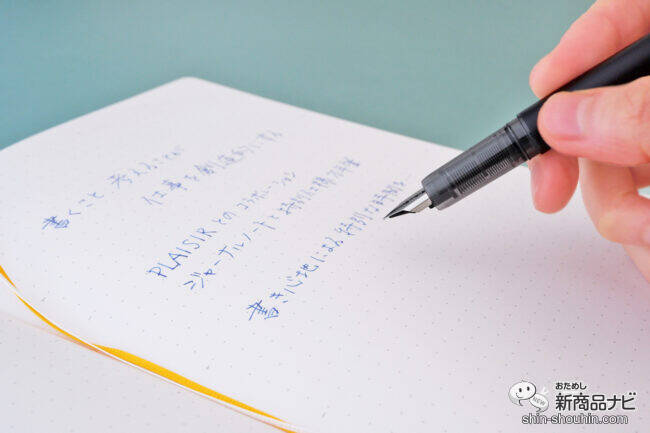 書くこと 考えることが
仕事を創造的にする
PLAISIR との コラボレーション
ジャーナルノートと 特別な
書き心地による 特別な時間を
おためし
新商品ナビ
NEW
shin-shouhin.com